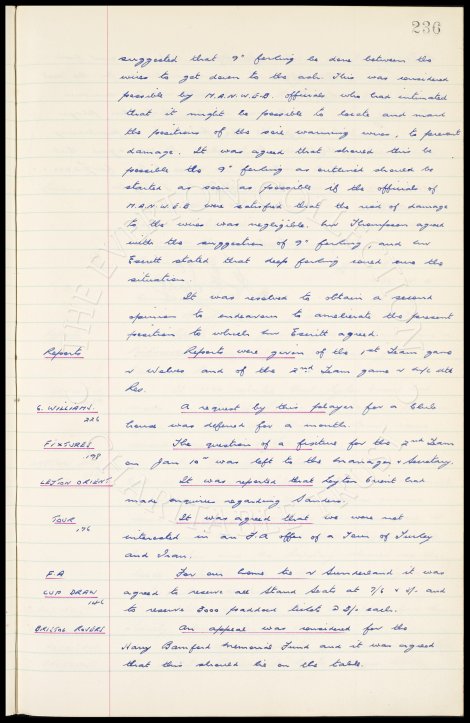 236
suggested that 9" forking be done between the
wires to get down to the ash. This was considered
possible by M.A.N.W.E.B. officials who had intimated
that it might be possible to locate and mark
the positions of the soil warming wires, to prevent
damage. It was agreed that should this be
possible the 9" forking as outlined should be
started as soon as possible if the officials of
M.A.N.W.E.B were satisfied that the risk of damage
to the wires was negligible. Mr Thompson agreed
with the suggestion of 9" forking, and Mr
Escritt stated that deep forking would cure the
situation.
It was resolved to obtain a second
opinion to endeavour to ameliorate the present
position to which Mr Escritt agreed.
Reports Reports were given of the 1st Team game
v Wolves and of the 2nd Team game v
Res.
G. WILLIAMS. A request by this player for a Club
226 house was deferred for a month.
FIXTURES. The question of a fixture for the 2nd Team
198 on Jan 10th was left to the Manager & Secretary.
LEYTON ORIENT It was reported that Leyton Orient had
made enquiries regarding Sanders.
TOUR It was agreed that we were not
196 interested in an F.A offer of a Tour of Turkey
and Iran.
F.A For our home tie v Sunderland it was
CUP DRAW agreed to reserve all Stand Seats at 7/6 & 5/- and
to reserve 3000 paddock tickets @ 3/- each.
BRISTOL ROVERS An appeal was considered for the
Harry Bamford Memorial Fund and it was agreed
that this should lie on the table.